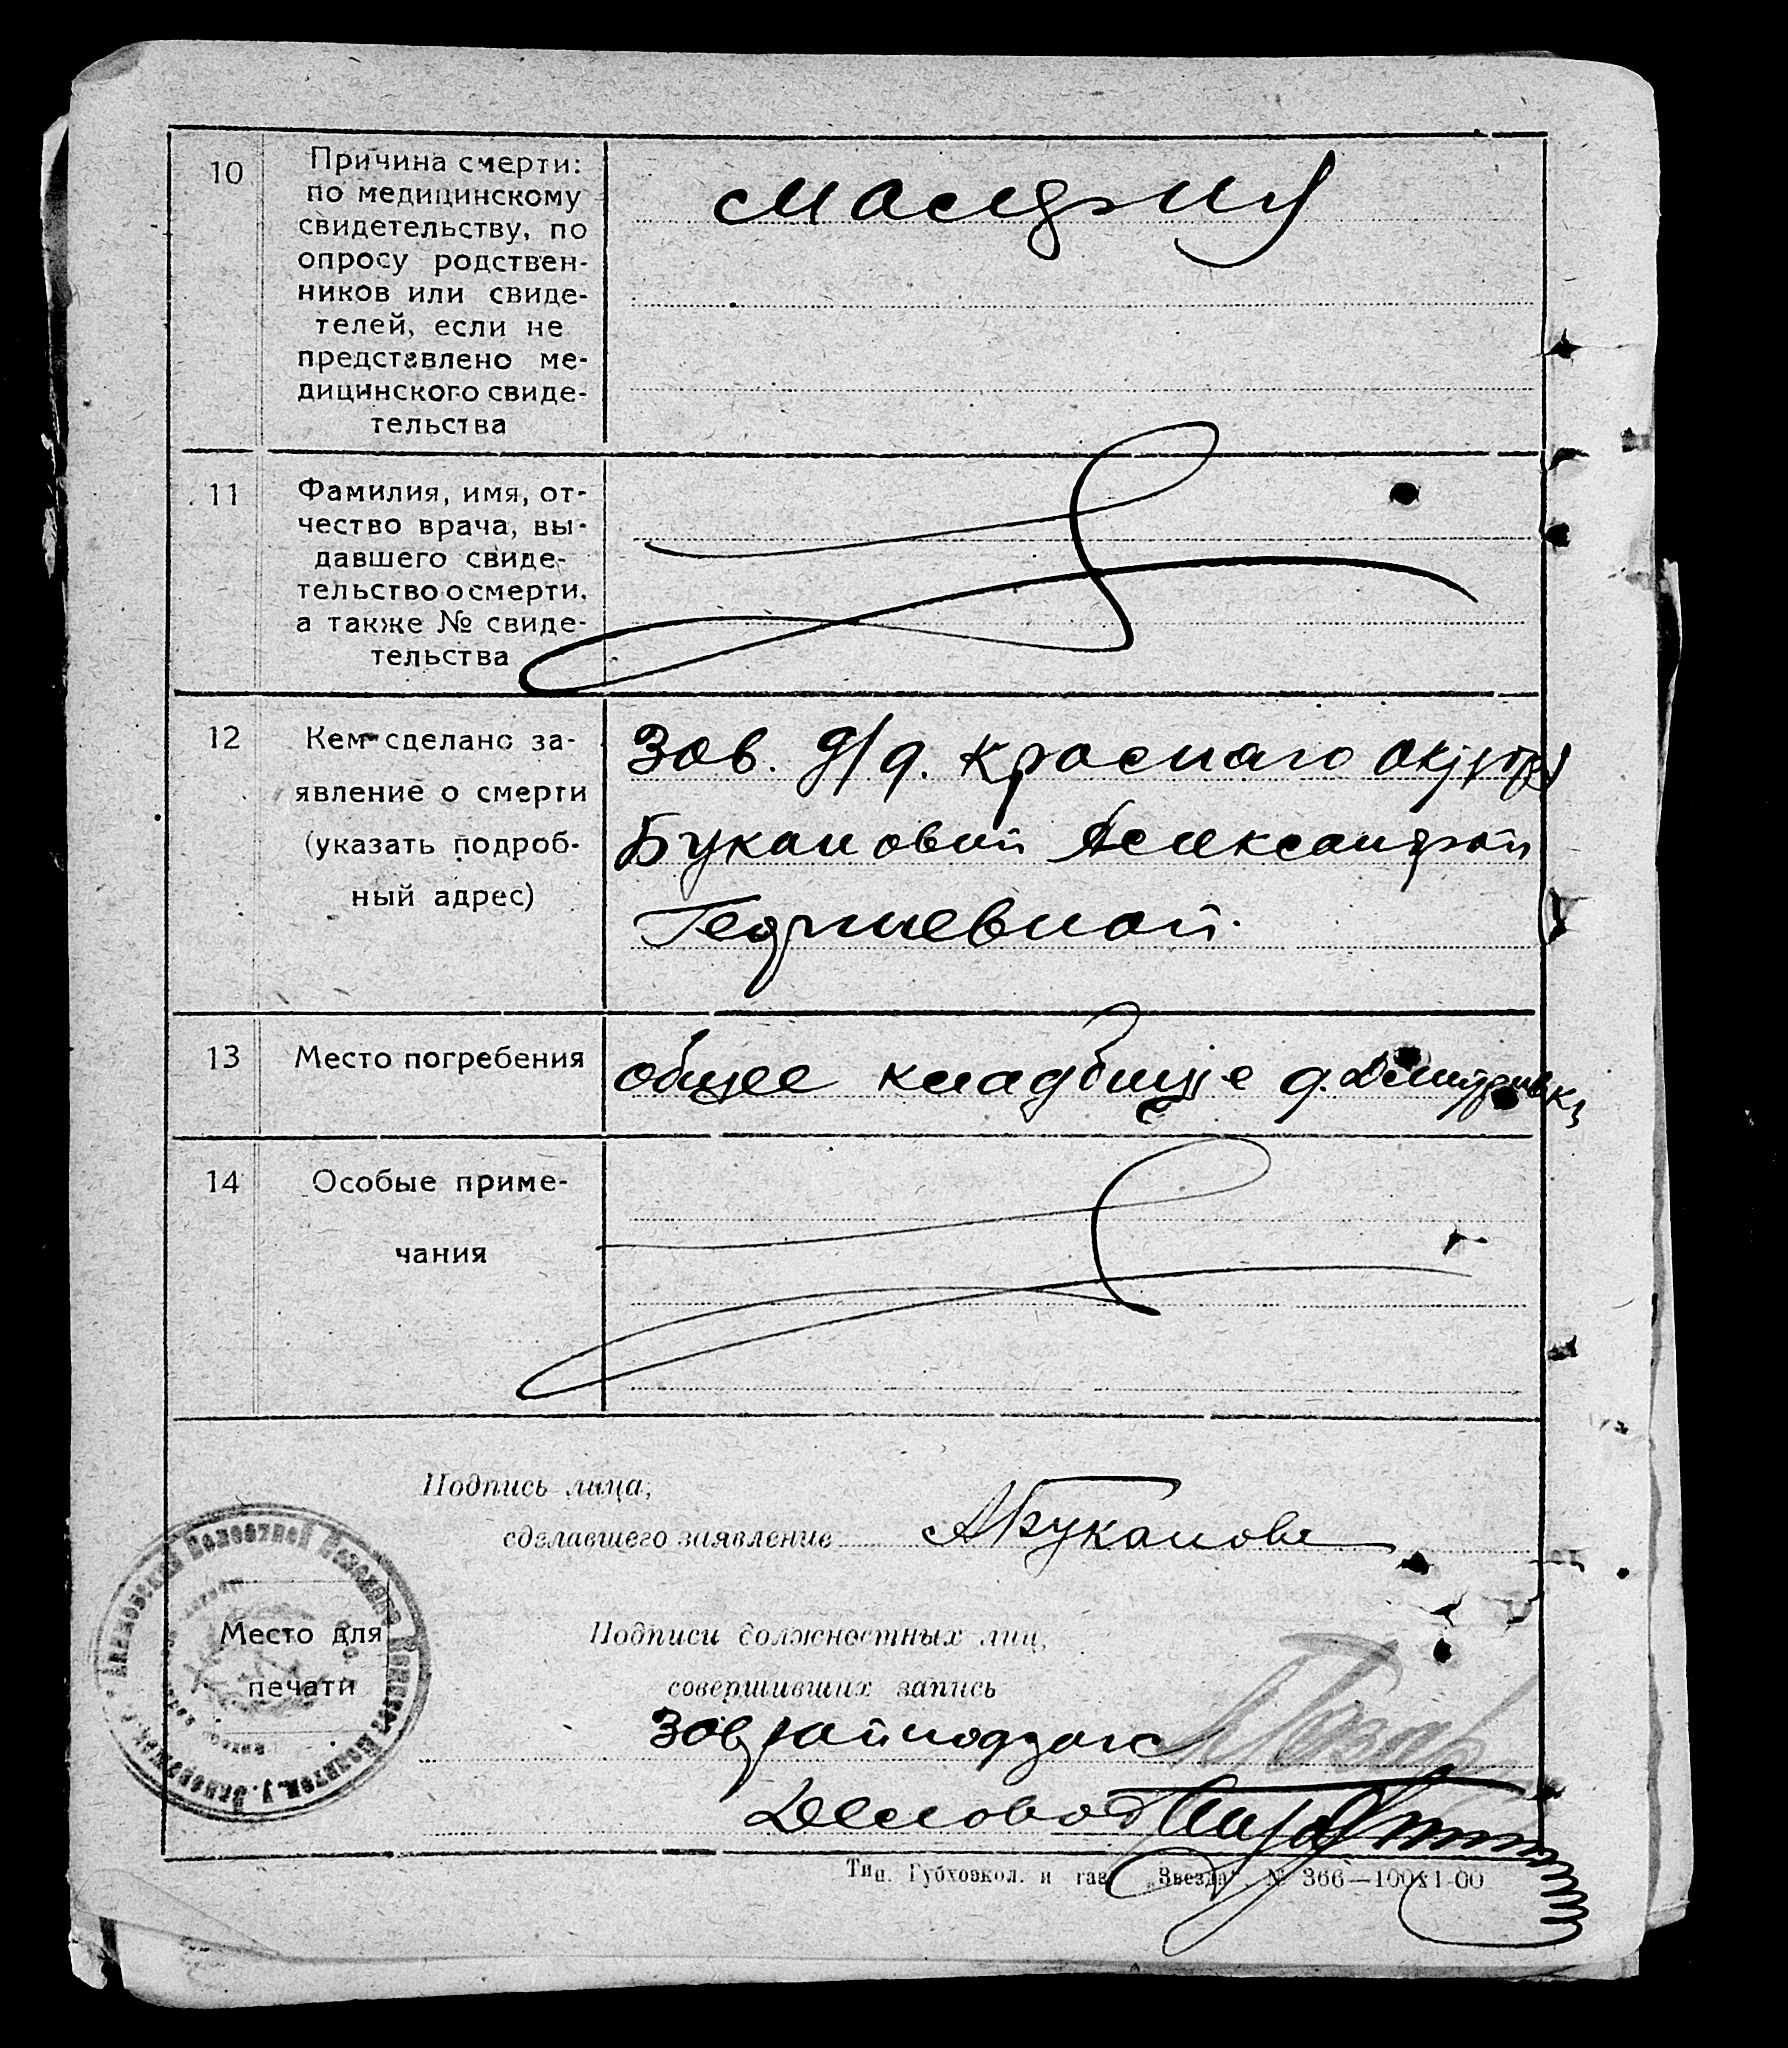 10
Причина смерти:
по медицинскому
свидетельству, по
опросу родствен-
ников или свиде-
телей, если не
представлено ме-
дицинского свиде-
тельства
11
Фамилия, имя, от-
чество врача, вы-
давшего свиде-
тельство о смерти,
а также № свиде-
тельства
12
Кем сделано за-
явление о смерти
(указать подроб-
ный адрес)
Зав. д/д. Краснаго
Букановой Александрой
Георгиевной.
13
Место погребения
общее кладбище д.
14
Особые приме-
чания
Подпись лица,
сделавшего заявление
АБуканова
Место для
печати
Подписи должностных лиц,
совершивших запись
Зав
Деловод
Тип. Губховкол. и газ. „Звезда“. № 366—100х1-00